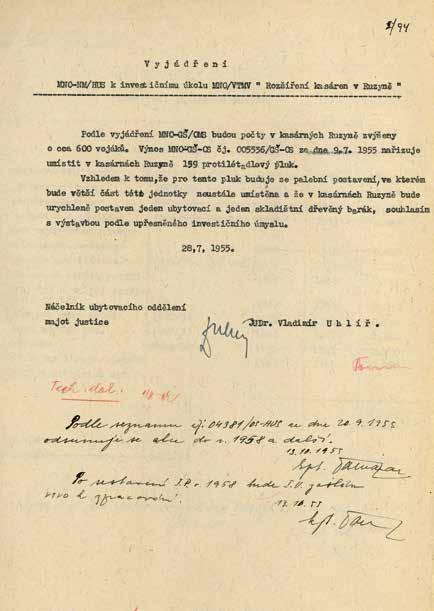 2/94
Vyjádření
MNO-NM/HUS k investičnímu úkolu MNO/VTMV " Rozšíření kasáren v Ruzyně "
Podle vyjádření MNO-GŠ/OMS budou počty v kasárných Ruzyně zvýšeny
o cca 600 vojáků. Výnos MNO-GŠ-OS čj. 005536/GŠ-OS ze dne 9.7. 1955 nařizuje
umístit v kasárnách Ruzyně 159 protiletadlový pluk.
Vzhledem k tomu,že pro tento pluk buduje se palební postavení,ve kterém
bude větší část této jednotky neustále umístěna a že v kasárnách Ruzyně bude
urychleně postaven jeden ubytovací a jeden skladištní dřevěný barák, souhlasím
s výstavbou podle upřesněného investičního úmyslu.
28,7, 1955.
Náčelník ubytovacího oddělení
majot justice JUDr. Vladimír Uhlíř.
Podle seznamu čj. 04381/05-HUS ze dne 20.9.1955
odsunuje se akce do r. 1958 a další.
13.10.1955
kpt.
Po sestavení I.P. r. 1958 bude
zpracování.
13.10.55
kpt.